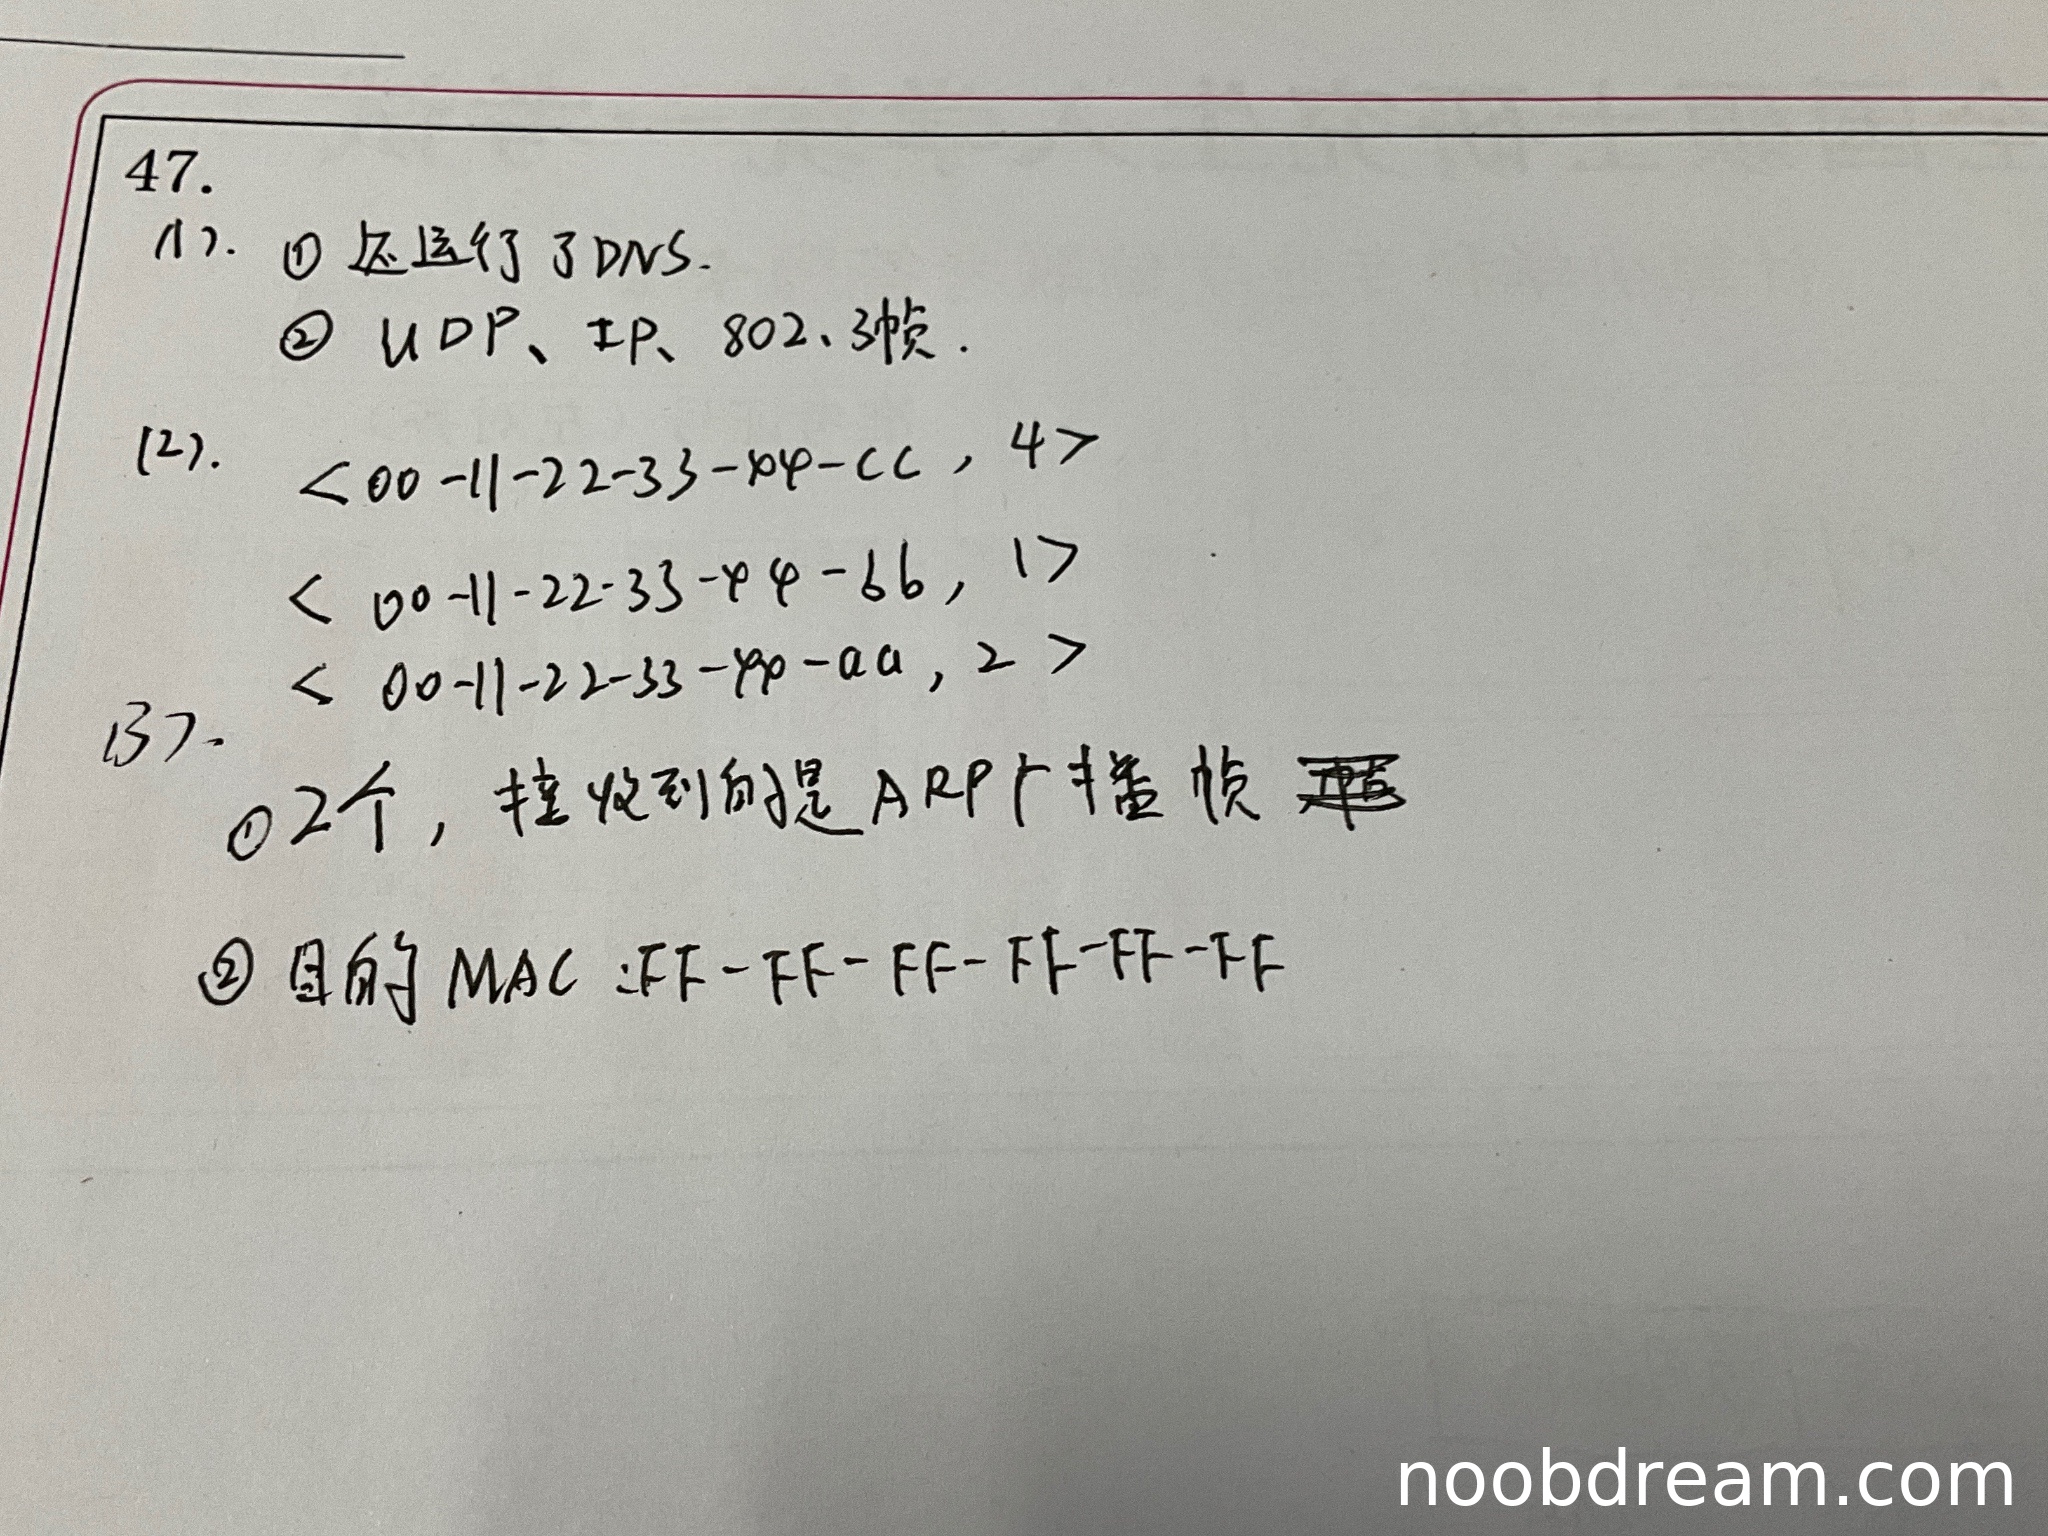 47.
(1). ① 还运行了DNS.
② UDP、IP、802.3帧.
(2). <00-11-22-33-44-cc, 4>
<00-11-22-33-44-bb, 1>
<00-11-22-33-44-aa, 2>
(3).
① 2个, 接收到的是ARP广播帧
② 目的MAC:FF-FF-FF-FF-FF-FF
noobdream.com